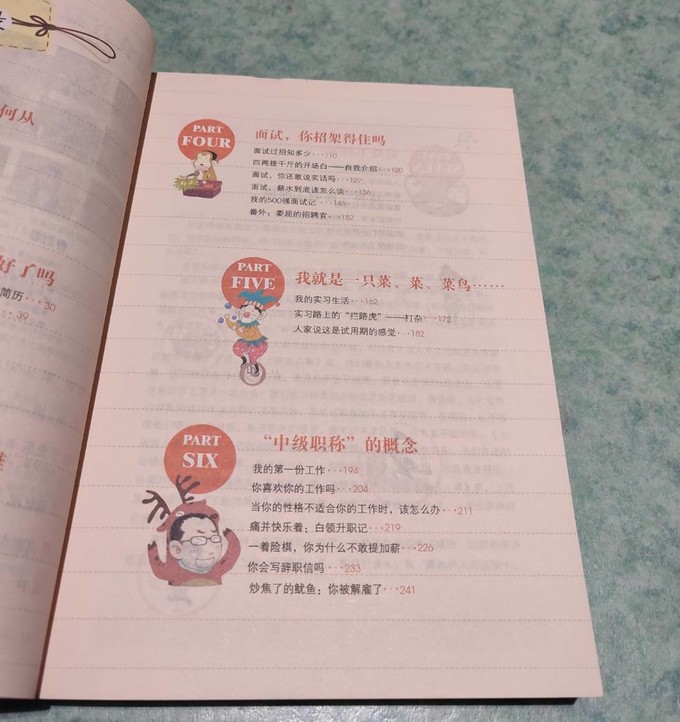 何从
好了吗
简历···30
39
PART
FOUR
面试，你招架得住吗
面试过招知多少···110
四两拨千斤的开场白——自我介绍···120
面试，你还敢说实话吗···127
面试，薪水到底该怎么谈···136
我的500强面试记···145
番外：委屈的招聘官···152
PART
FIVE
我就是一只菜、菜、菜鸟……
我的实习生活···162
实习路上的“拦路虎”——打杂···172
人家说这是试用期的感觉···182
PART
SIX
“中级职称”的概念
我的第一份工作···194
你喜欢你的工作吗···204
当你的性格不适合你的工作时，该怎么办···211
痛并快乐着：白领升职记···219
一着险棋，你为什么不敢提加薪···226
你会写辞职信吗···233
炒焦了的鱿鱼：你被解雇了···241